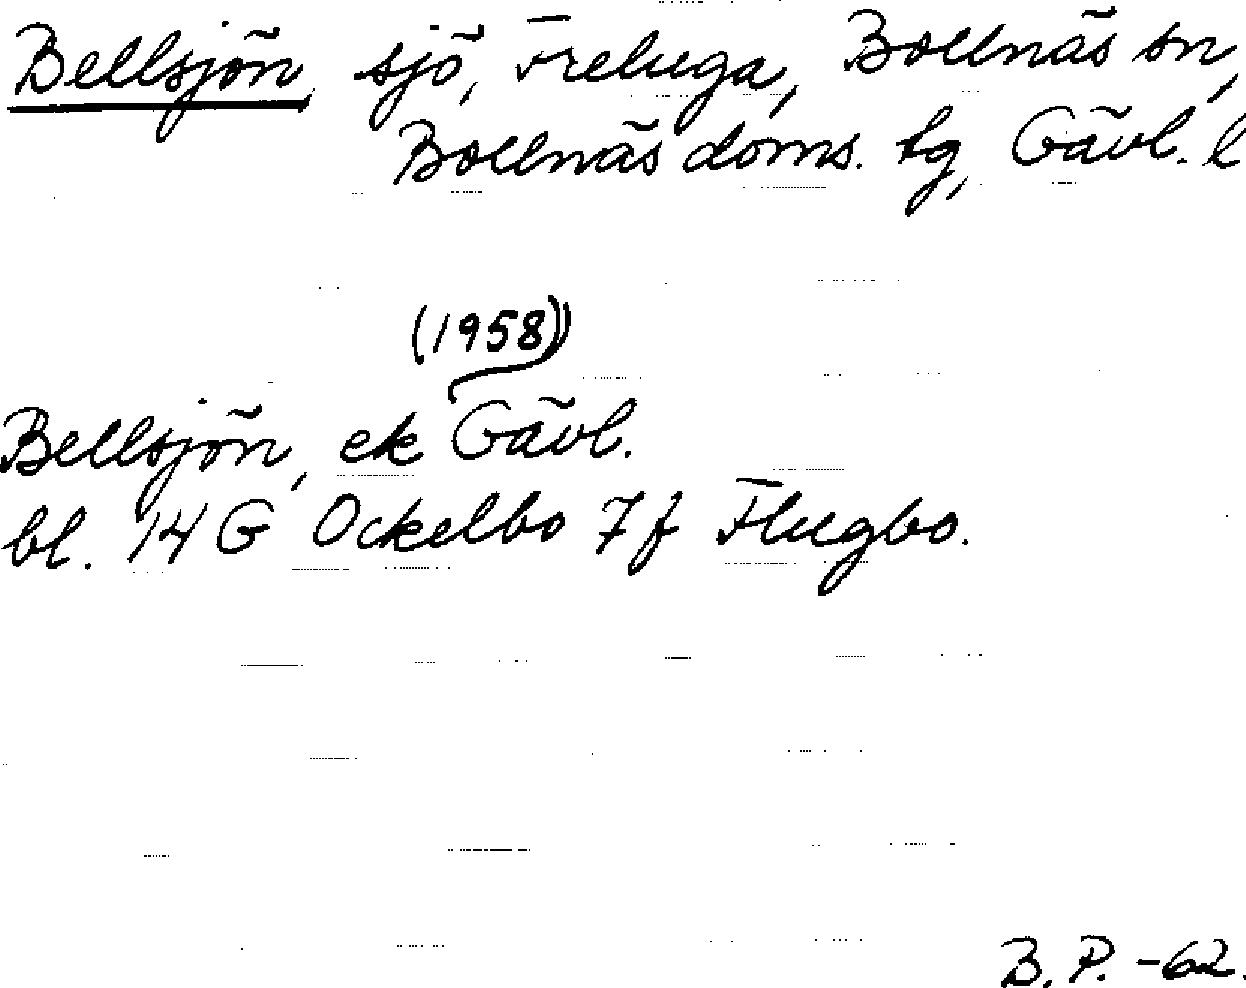 Bellsjön, sjö, Freluga, Bollnäs sn,
Bollnäs doms. tg, Gävl. l
(1958)
Bellsjön, ek Gävl.
bl. 14 G Ockelbo 7f Flugbo.
B. P. -62.